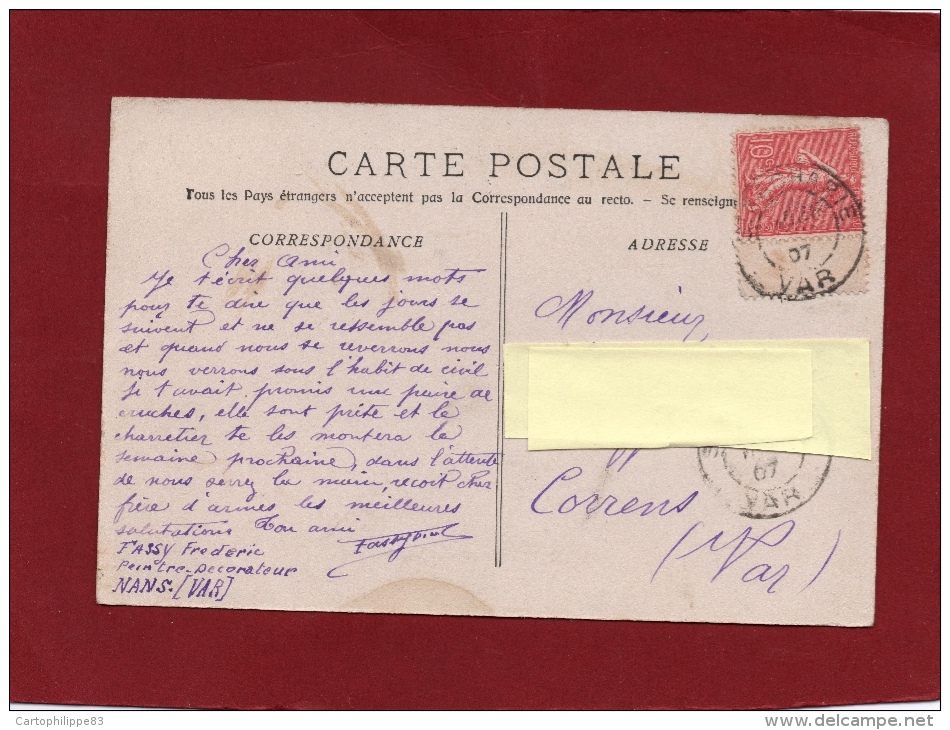 CARTE POSTALE
Tous les Pays étrangers n'acceptent pas la Correspondance au recto. — Se renseign
CORRESPONDANCE
Cher Ami
Je t'écrit quelques mots
pour te dire que les jours se
suivent et ne se ressemble pas
et quand nous se reverrons nous
nous verrons sous l'habit de civil
Ji t'avait promis une paire de
cruches, elle sont prête et le
charretier te les montera la
semaine prochaine, dans l'attente
de nous serrer la main, recoit cher
frère d'armes les meilleures
salutations Ton ami
FASSY Frederic
Peintre-Decorateur
NANS. [VAR]
ADRESSE
Monsieur
Correns
(Var)
10
07
VAR
07
VAR
Cartophilippe83
delcampe.net